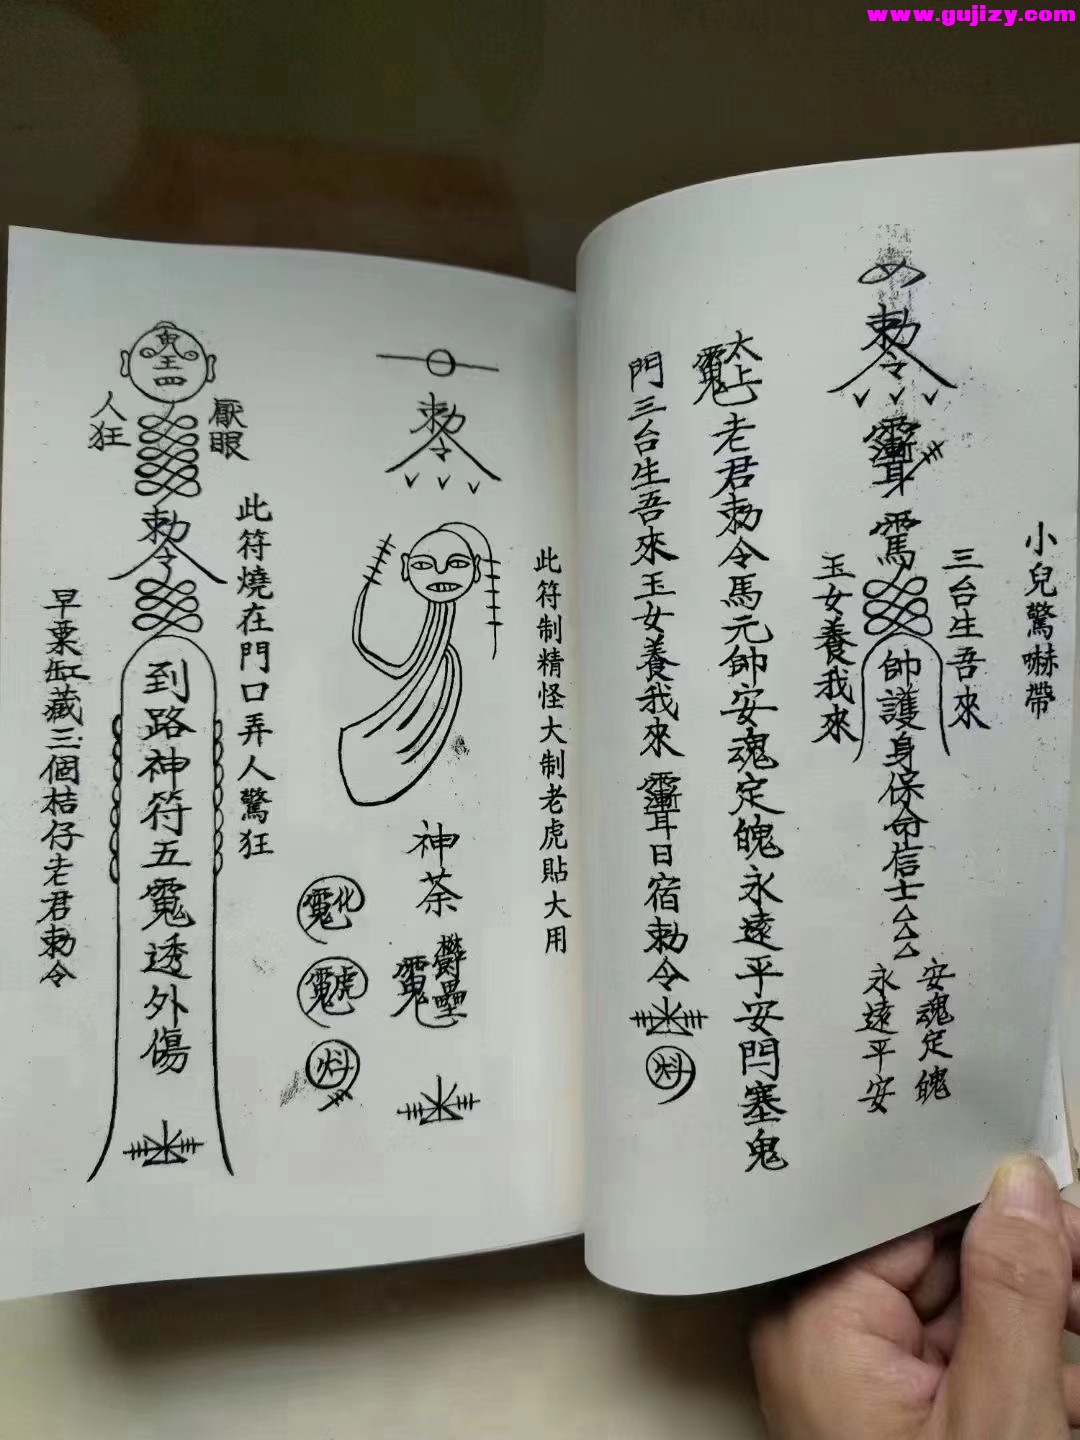 www.gujizy.com
小兒驚嚇帶
三台生吾來
勅令
帥護身保命信士△△△
安魂定魄
永遠平安
玉女養我來
太上老君勅令馬元帥安魂定魄永遠平安閂塞鬼
門三台生吾來玉女養我來
日宿勅令
此符制精怪大制老虎貼大用
勅令
神荼
鬱壘
化
虎
此符燒在門口弄人驚狂
厭眼
勅令
到路神符五
透外傷
人狂
早粟缸藏三個桔仔老君勅令